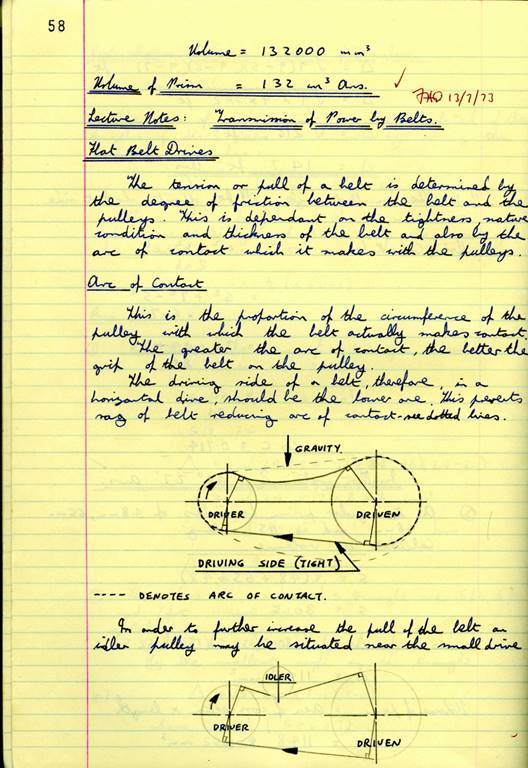 58
Volume = 132000 mm³
Volume of Prism = 132 cm³ Ans. ✓
13/7/73
Lecture Notes: Transmission of Power by Belts.
Flat Belt Drives
The tension or pull of a belt is determined by
the degree of friction between the belt and the
pulleys. This is dependant on the tightness, nature
condition and thickness of the belt and also by the
arc of contact which it makes with the pulleys.
Arc of Contact
This is the proportion of the circumference of the
pulley with which the belt actually makes contact.
The greater the arc of contact, the better the
grip of the belt on the pulley.
The driving side of a belt, therefore, in a
horizontal drive, should be the lower one. This prevents
sag of belt reducing arc of contact - see dotted lines.
GRAVITY.
DRIVER DRIVEN
DRIVING SIDE (TIGHT)
---- DENOTES ARC OF CONTACT.
In order to further increase the pull of the belt an
idler pulley may be situated near the small drive
IDLER
DRIVER DRIVEN